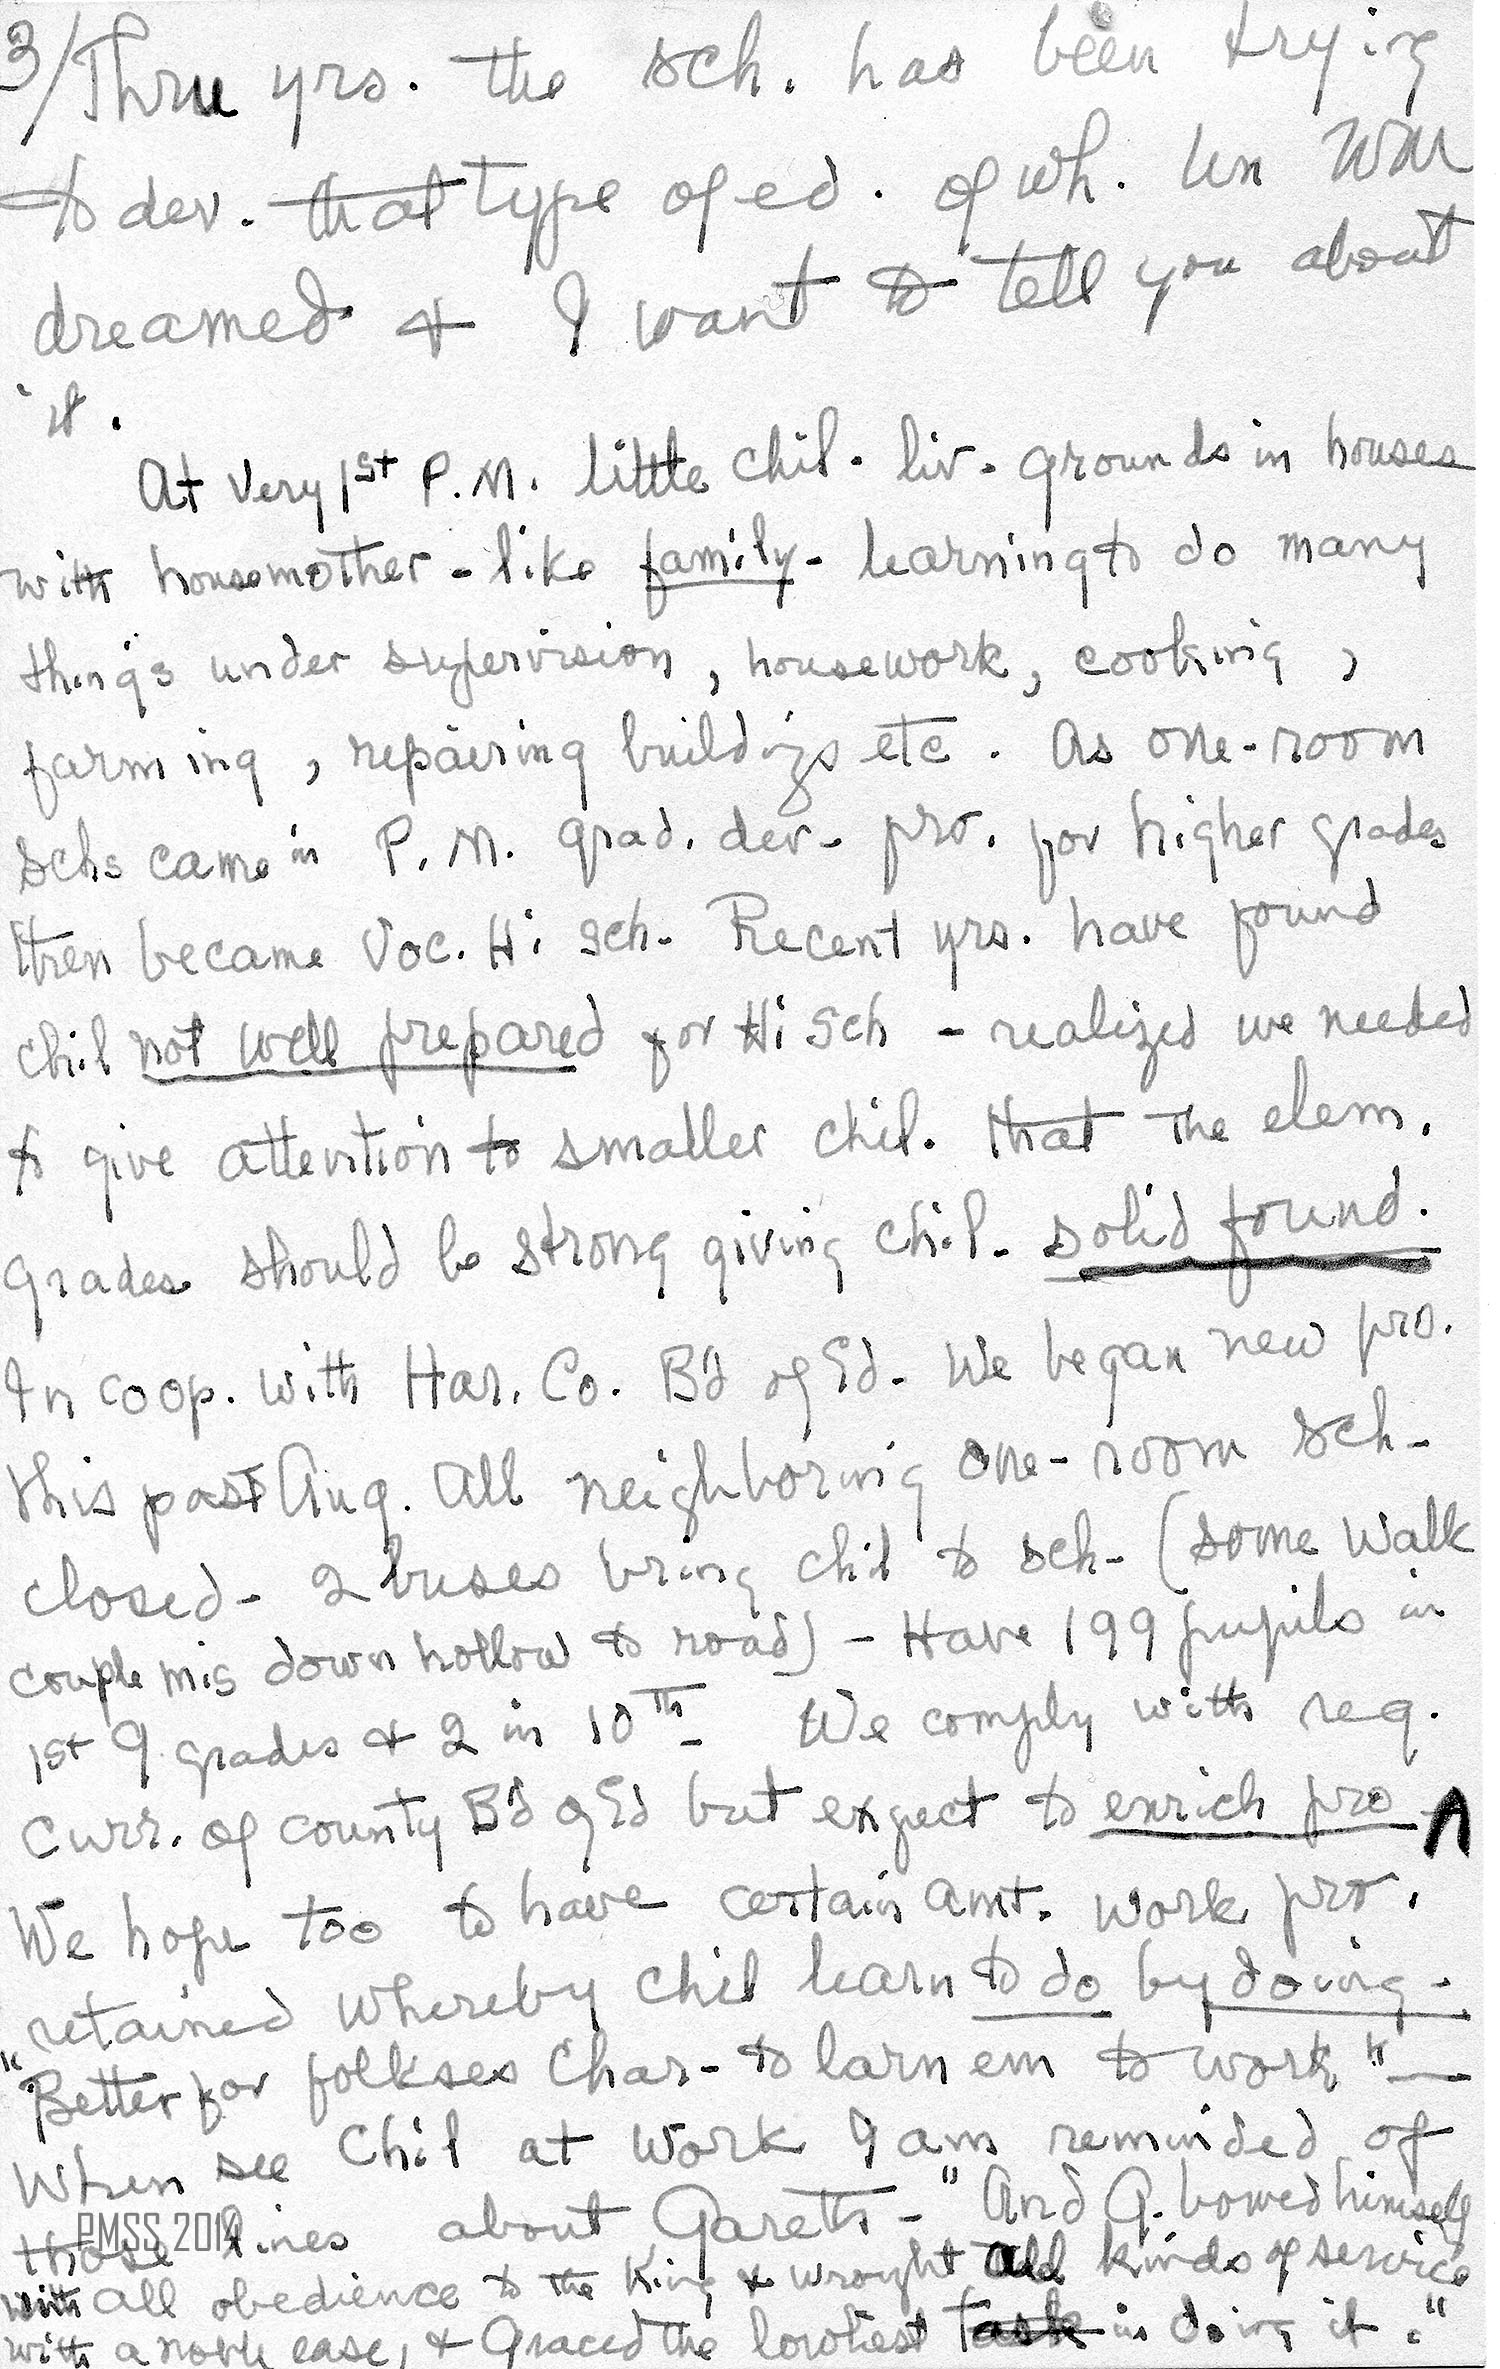 3/Thru yrs. the sch. has been trying
to dev. that type of ed. of wh. Un Wm
dreamed & I want to tell you about
it.
At very 1st P.M. little chil. liv. grounds in houses
with housemother - like family - learning to do many
things under supervision, housework, cooking,
farming, repairing buildings etc. As one-room
schs came in P.M. grad. dev. pro. for higher grades
then became Voc. Hi Sch. Recent yrs. have found
chil not well prepared for Hi Sch - realized we needed
to give attention to smaller chil. that the elem.
grades should be strong giving chil. solid found.
In coop. with Har. Co. B'd of Ed. We began new pro.
this past Aug. All neighboring one-room sch-
closed - 2 buses bring chil to sch - (some walk
couple mis down hollow to road) - Have 199 pupils in
1st 9 grades & 2 in 10th We comply with req.
curr. of county B'd of Ed but expect to enrich pro ^
We hope too to have certain amt. work pro.
retained whereby chil learn to do by doing -
"Better for folkses char - to larn em to work" -
When see chil at work I am reminded of
those lines about Gareth - "And G. bowed himself
with all obedience to the King & wrought all kinds of service
with a noble ease, & graced the lowliest task in doing it."
PMSS 2014